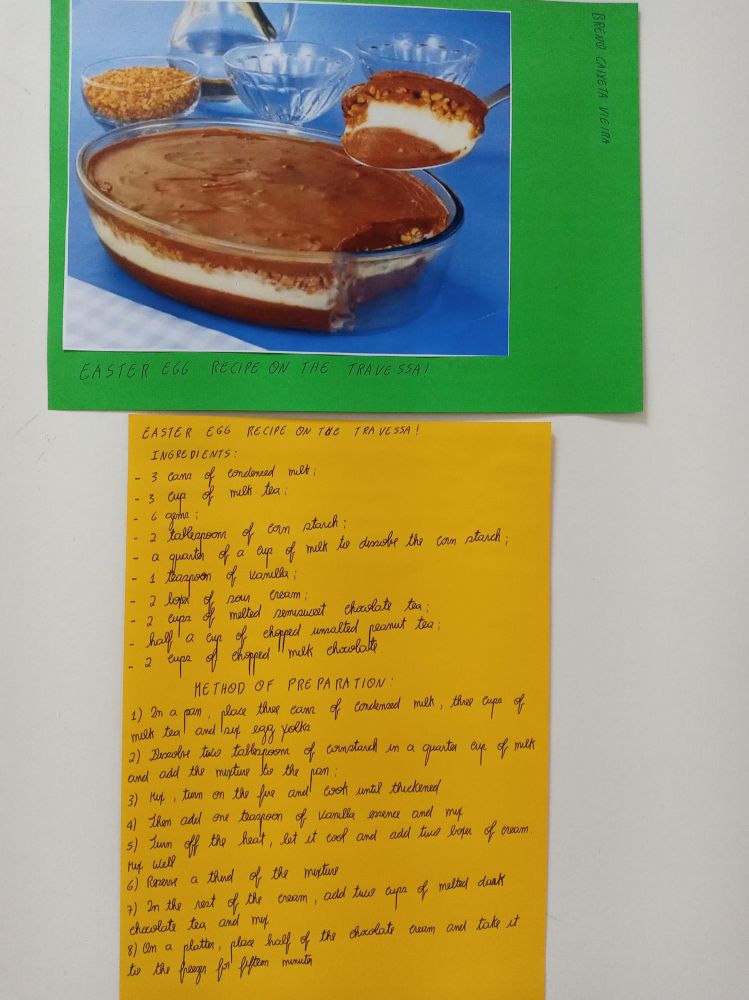 BRENO CAIXETA VIEIRA
EASTER EGG RECIPE ON THE TRAVESSA!
EASTER EGG RECIPE ON THE TRAVESSA!
INGREDIENTS:
- 3 cans of condensed milk;
- 3 cup of milk tea;
- 6 gems;
- 2 tablespoons of corn starch;
- a quarter of a cup of milk to dissolve the corn starch;
- 1 teaspoon of vanilla;
- 2 boxes of sour cream;
- 2 cups of melted semisweet chocolate tea;
- half a cup of chopped unsalted peanut tea;
- 2 cups of chopped milk chocolate.
METHOD OF PREPARATION:
1) In a pan, place three cans of condensed milk, three cups of
milk tea and six egg yolks
2) Dissolve two tablespoons of cornstarch in a quarter cup of milk
and add the mixture to the pan;
3) Mix, turn on the fire and cook until thickened
4) Then add one teaspoon of vanilla essence and mix
5) Turn off the heat, let it cool and add two boxes of cream.
Mix well
6) Reserve a third of the mixture
7) In the rest of the cream, add two cups of melted dark
chocolate tea and mix
8) On a platter, place half of the chocolate cream and take it
to the freezer for fifteen minutes